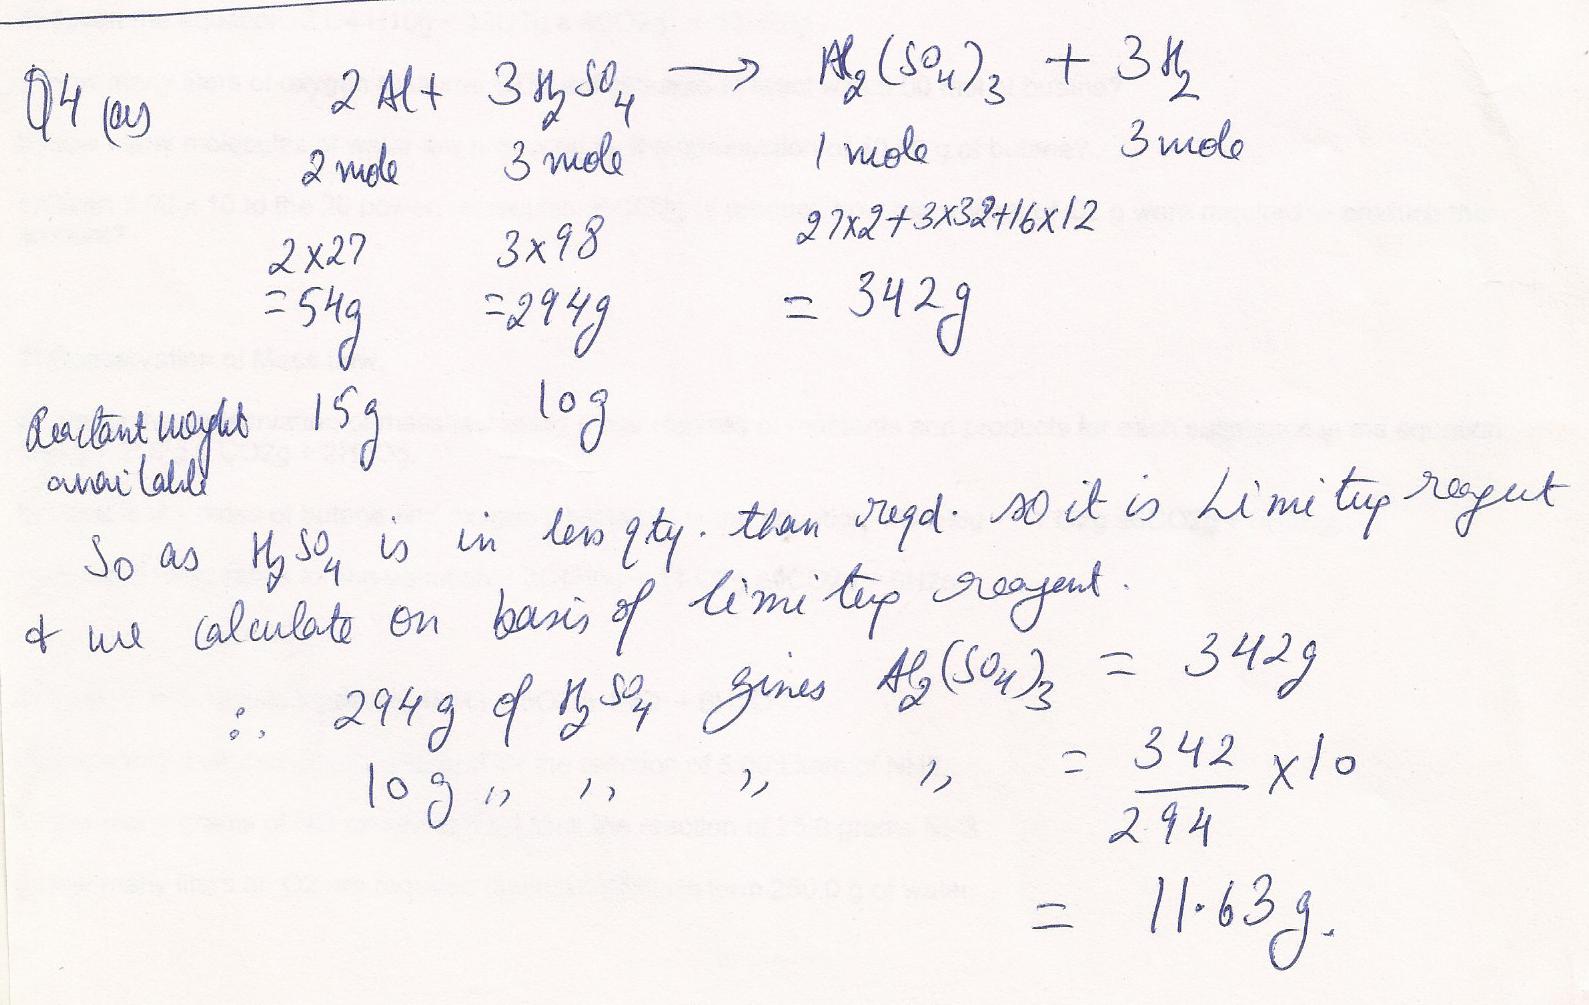 Q4 (a) 2 Al + 3 H2SO4 → Al2(SO4)3 + 3H2
2 mole 3 mole 1 mole 3 mole
2x27 3x98 27x2+3x32+16x12
=54g =294g = 342g
Reactant weight 15g 10g
available
So as H2SO4 is in less qty. than reqd. so it is Limiting reagent
& we calculate on basis of limiting reagent.
∴ 294g of H2SO4 gives Al2(SO4)3 = 342g
10g ,, ,, ,, ,, = 342/294 x10
= 11.63g.